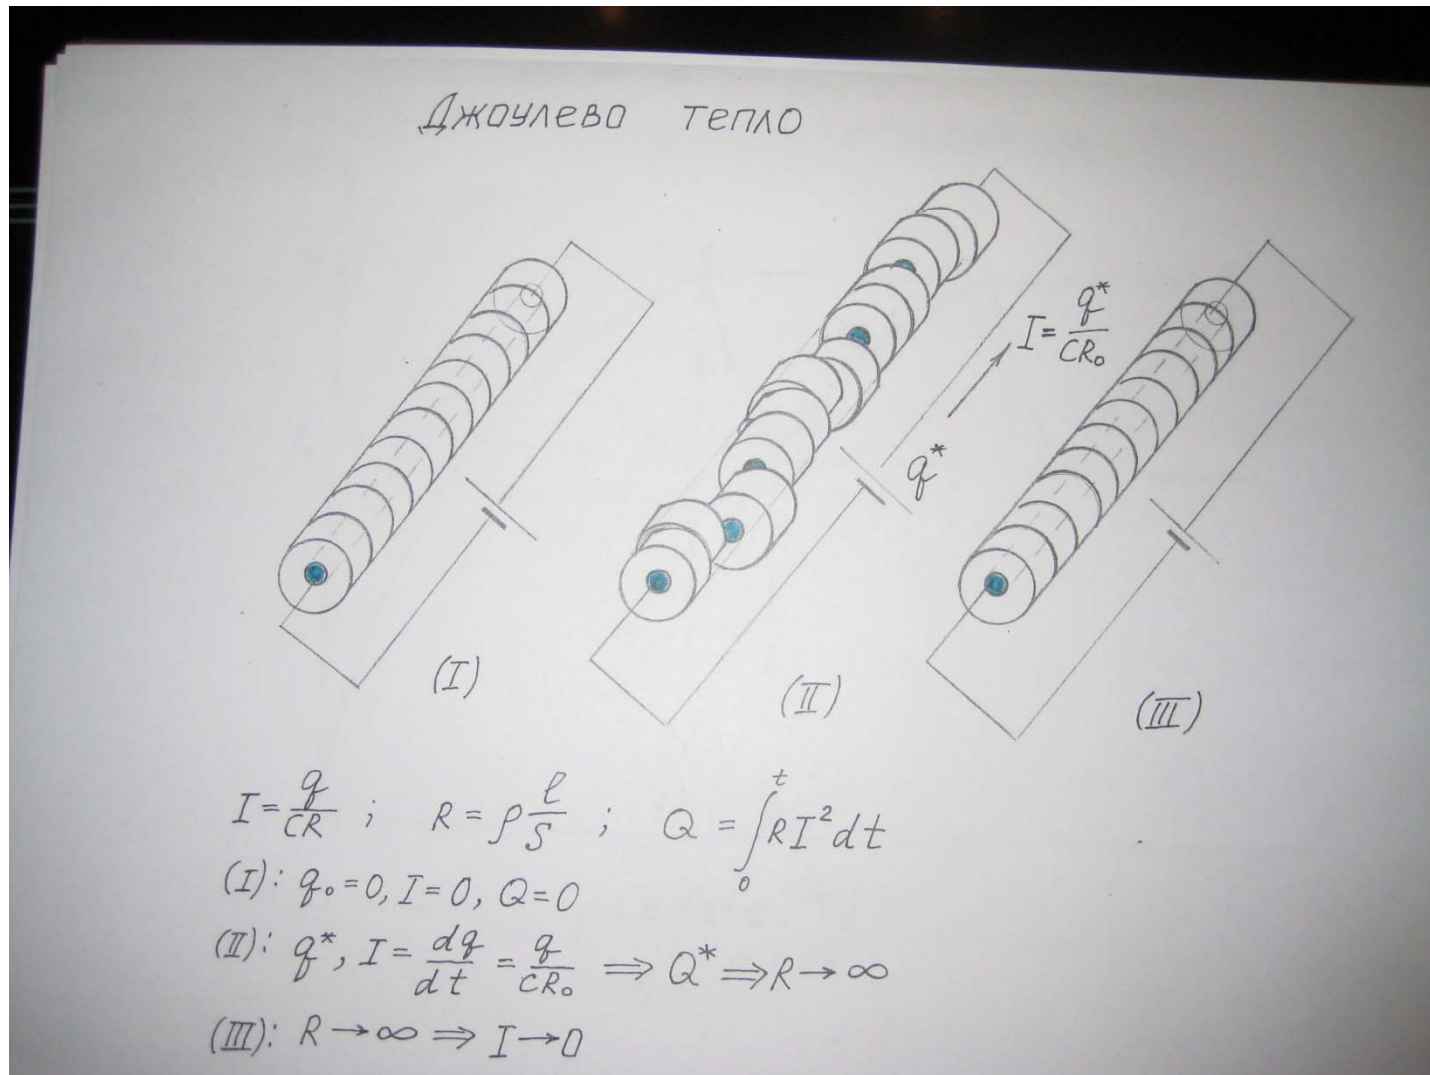 Джоулево тепло
I = q*/CR₀
q*
(I)
(II)
(III)
I = q/CR ; R = ρ ℓ/S ; Q = ∫₀ᵗ RI²dt
(I): q₀ = 0, I = 0, Q = 0
(II): q*, I = dq/dt = q/CR₀ ⇒ Q* ⇒ R → ∞
(III): R → ∞ ⇒ I → 0